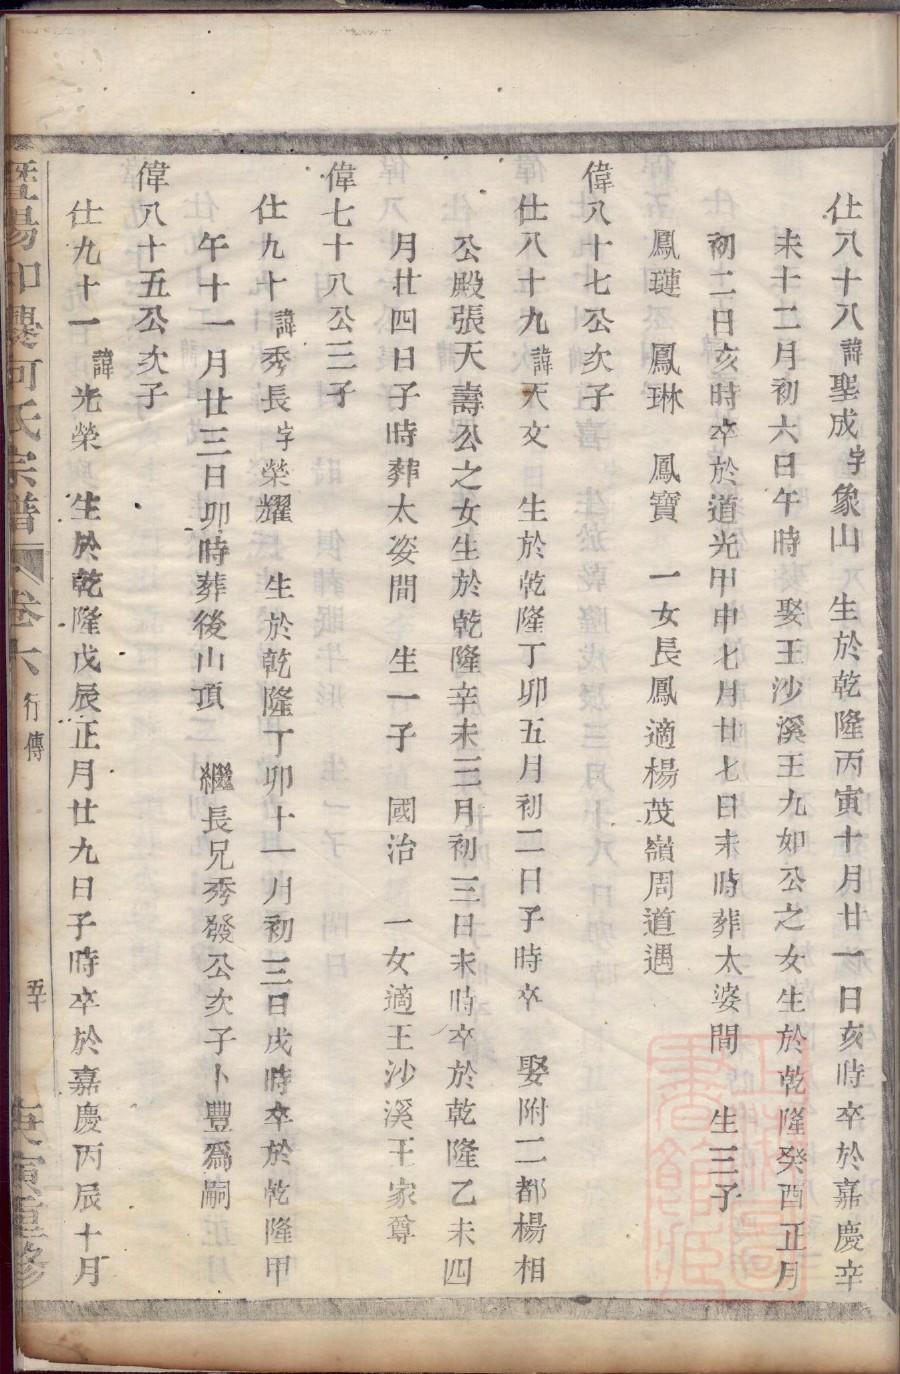 仕八十八諱聖成字象山　生於乾隆丙寅十月廿一日亥時卒於嘉慶辛
未十二月初六日午時　娶王沙溪王九如公之女生於乾隆癸酉正月
初二日亥時卒於道光甲申七月廿七日未時葬太婆間　生三子
鳳璉　鳳琳　鳳寶　一女長鳳適楊茂嶺周道遇
偉八十七公次子
仕八十九諱天文　生於乾隆丁卯五月初二日子時卒　娶附二都楊相
公殿張天壽公之女生於乾隆辛未三月初三日未時卒於乾隆乙未四
月廿四日子時葬太姿間　生一子　國治　一女適王沙溪王家尊
偉七十八公三子
仕九十諱秀長字榮耀　生於乾隆丁卯十一月初三日戌時卒於乾隆甲
午十一月廿三日卯時葬後山頂　繼長兄秀發公次子卜豐爲嗣
偉八十五公次子
仕九十一諱光榮　生於乾隆戊辰正月廿九日子時卒於嘉慶丙辰十月
暨陽 河氏宗譜　卷六　行傳　庚寅重修